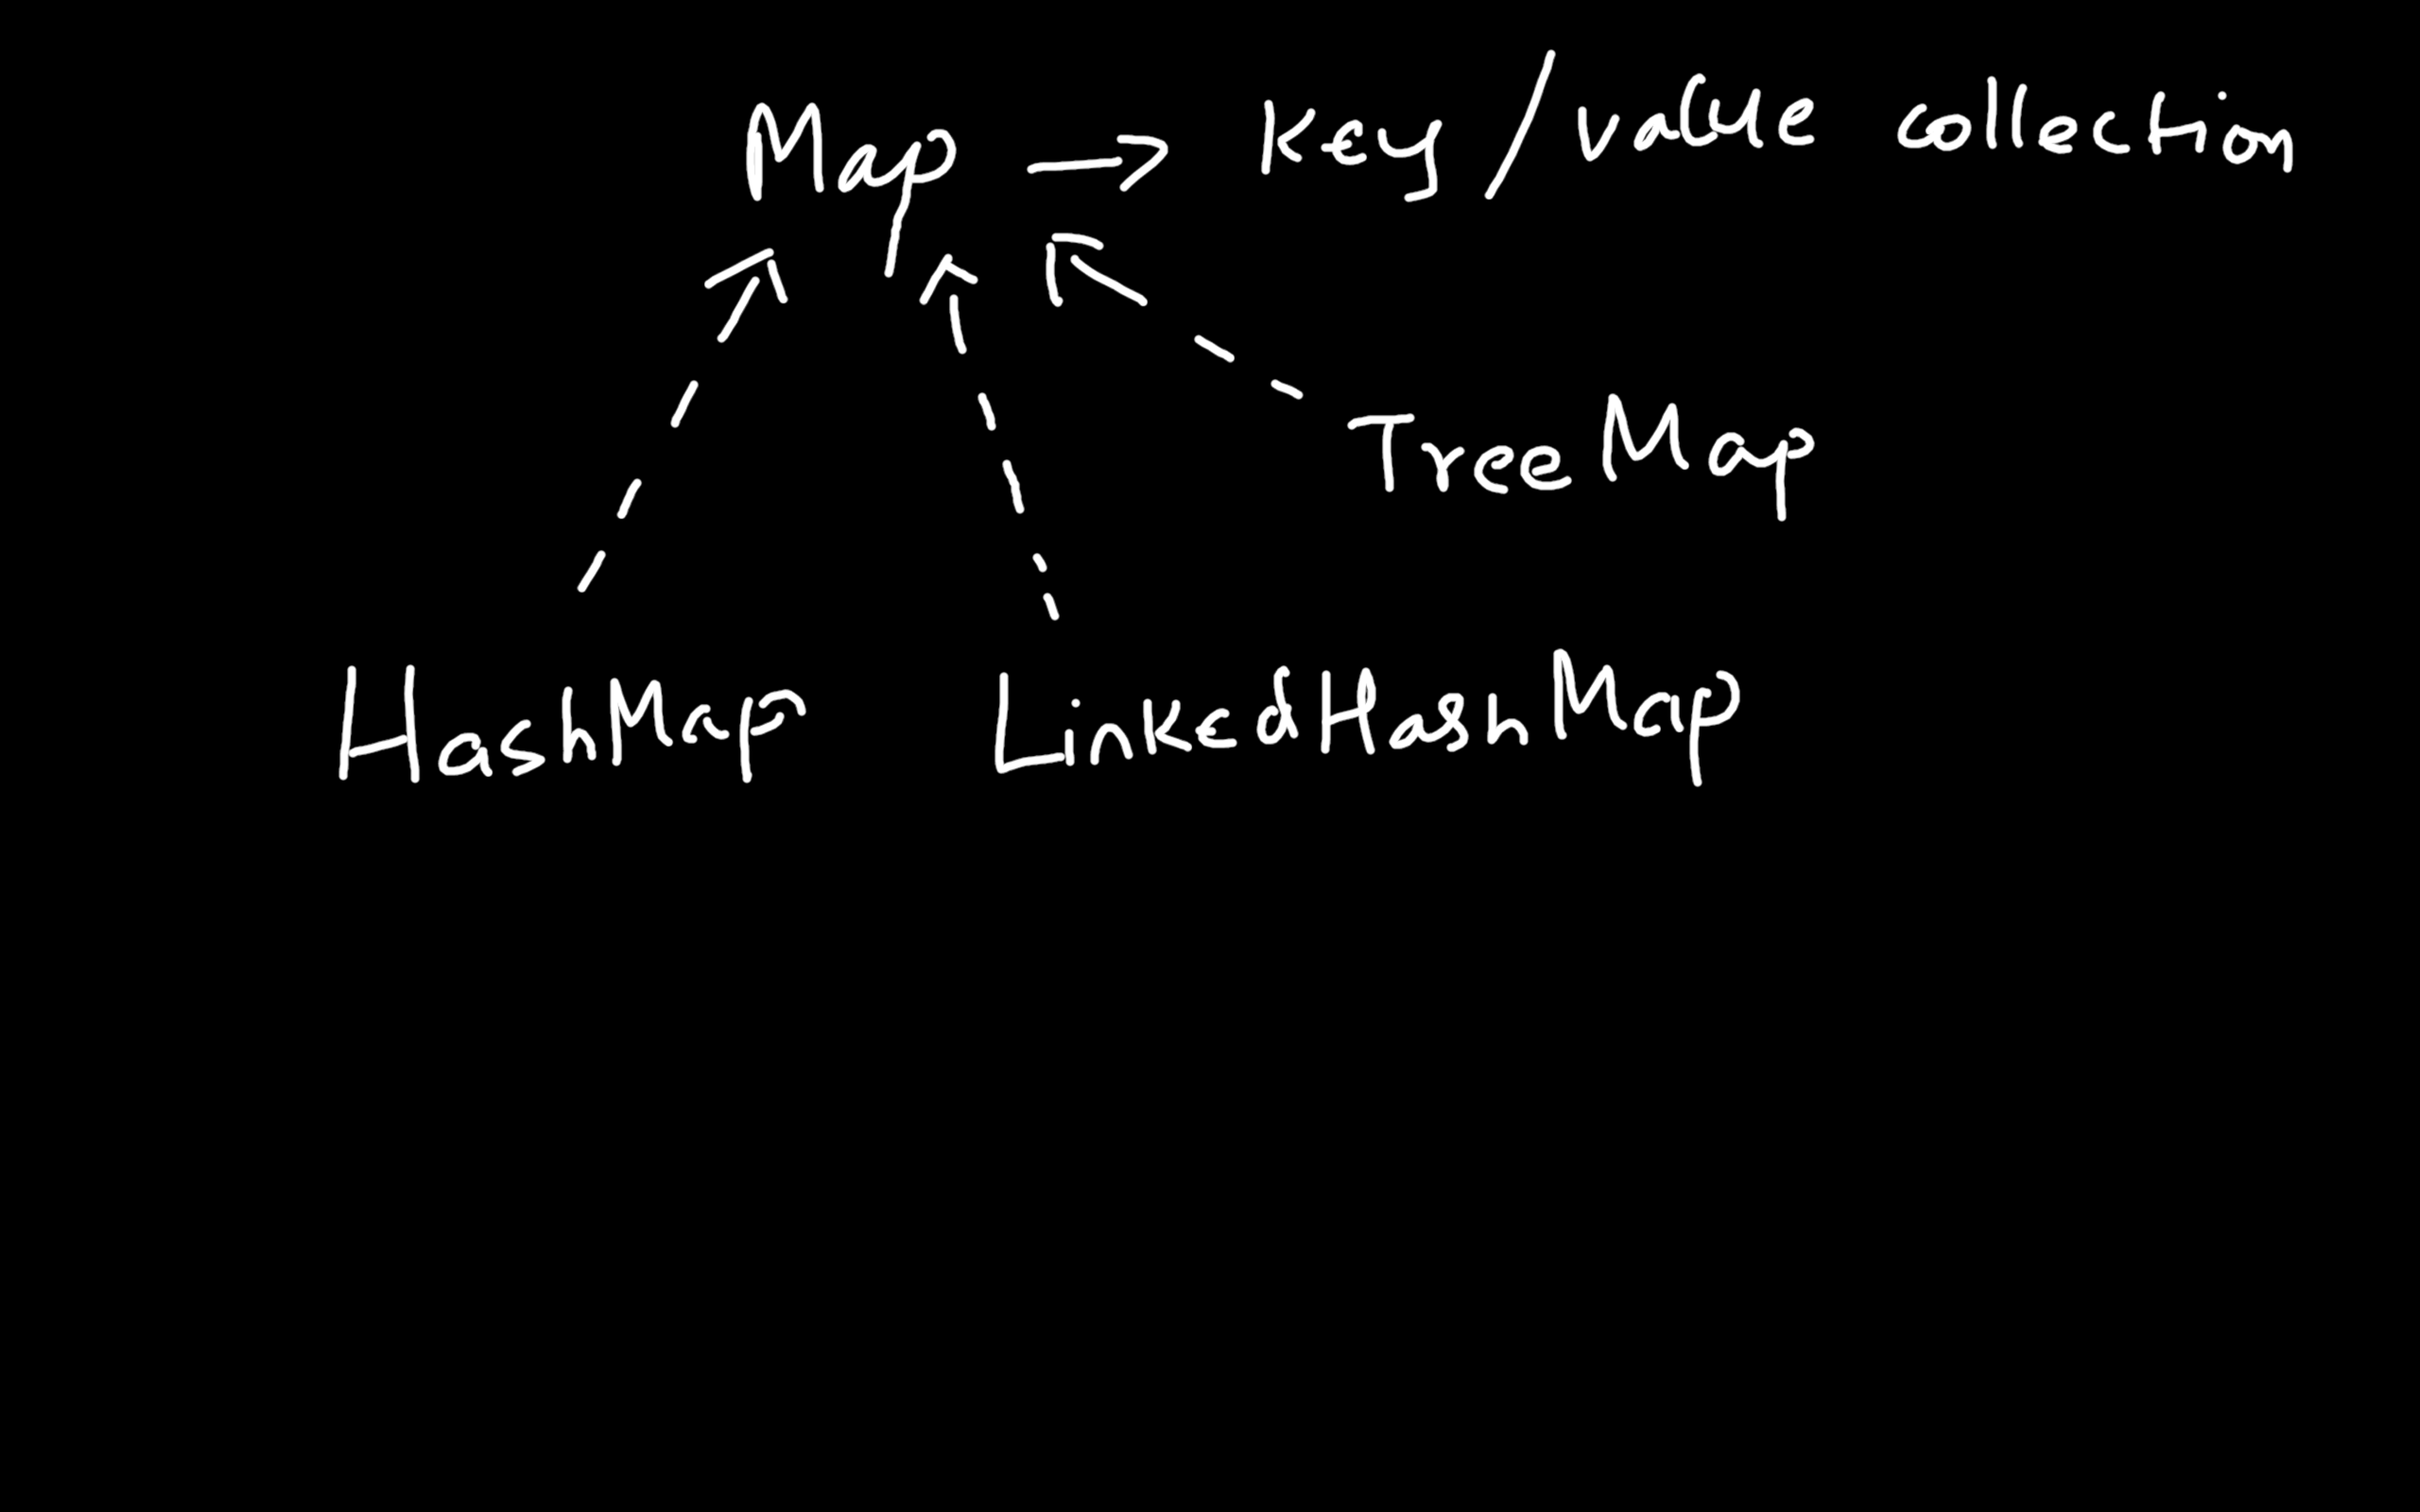 Map → Key/value collection
TreeMap
HashMap LinkedHashMap